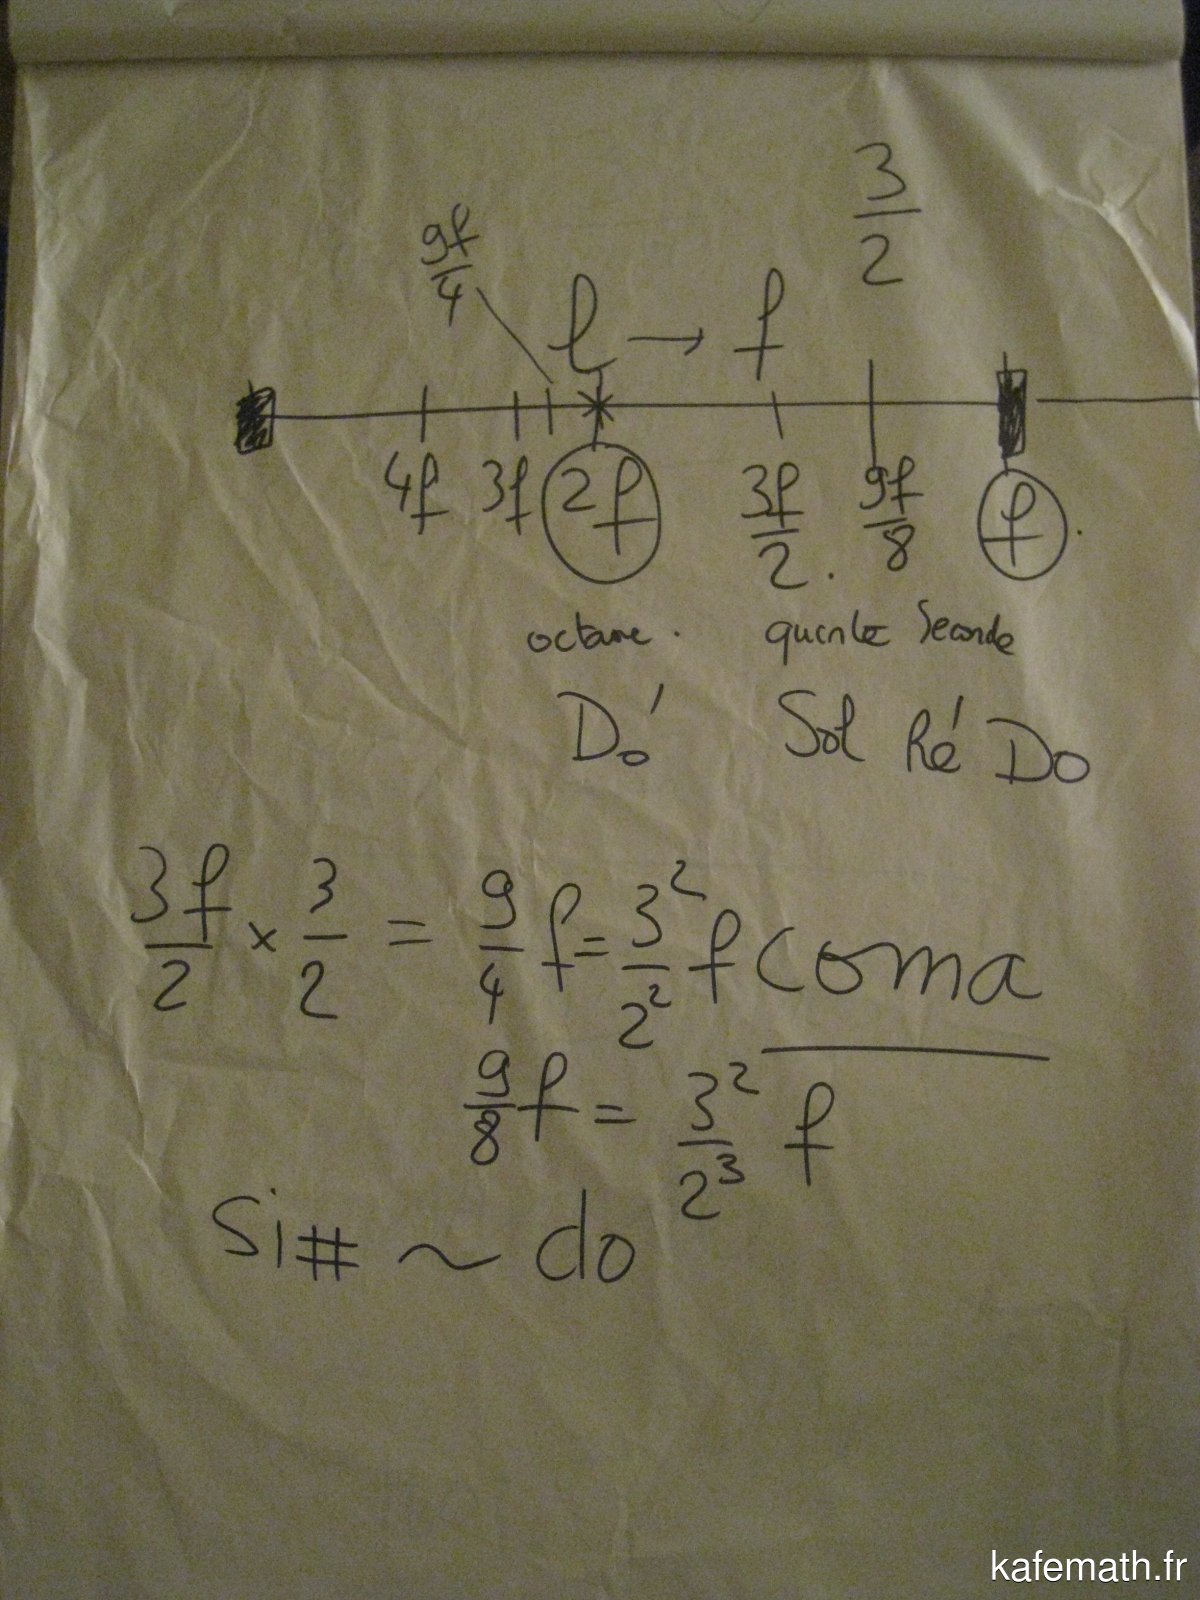 3/2
9f/4
l → f
4f 3f 2f 3f/2 . 9f/8 f .
octave . quinte seconde
Do' Sol Ré Do
3f/2 × 3/2 = 9/4 f = 3²/2² f coma
9/8 f = 3²/2³ f
Si# ~ do
kafemath.fr